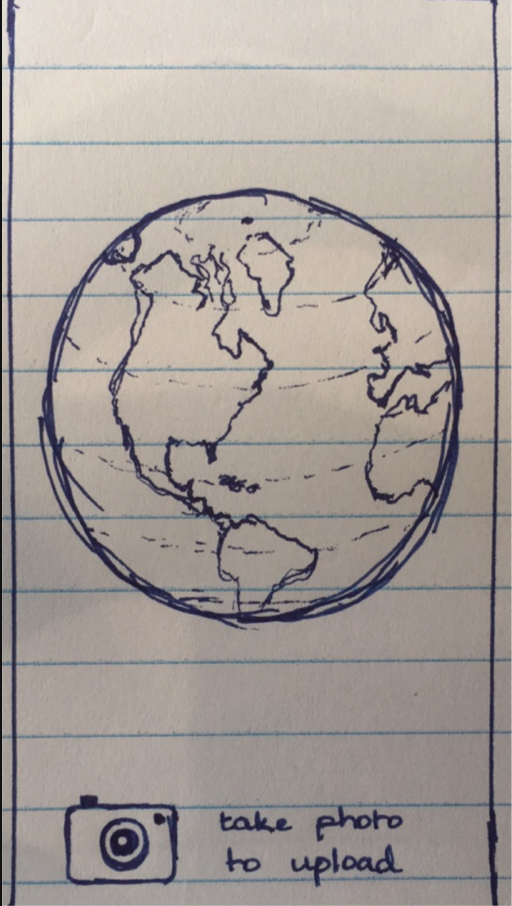 take photo
to upload